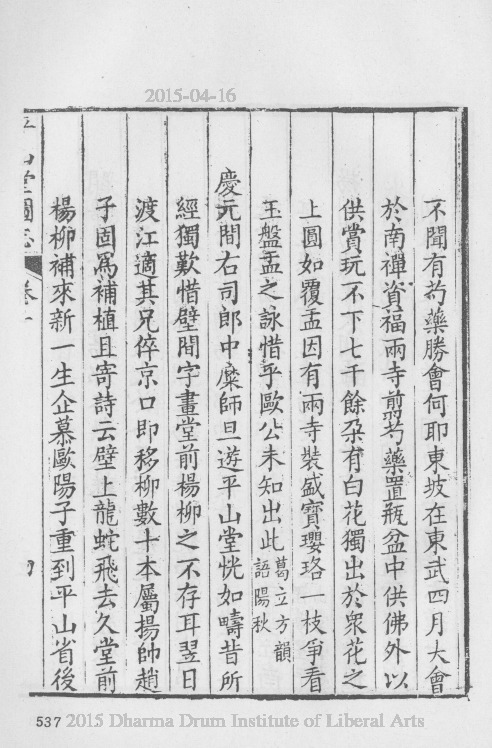 2015-04-16
不聞有芍藥勝會何耶東坡在東武四月大會
於南禪資福兩寺剪芍藥置瓶盆中供佛外以
供賞玩不下七千餘朶有白花獨出於衆花之
上圓如覆盂因有兩寺裝成寶瓔珞一枝爭看
玉盤盂之詠惜乎歐公未知出此葛立方韻
語陽秋
慶元間右司郎中糜師旦遊平山堂恍如疇昔所
經獨歎惜壁間字畫堂前楊柳之不存耳翌日
渡江適其兄倅京口即移柳數十本屬揚帥趙
子固爲補植且寄詩云壁上龍蛇飛去久堂前
楊柳補來新一生企慕歐陽子重到平山省後
山堂圖志 卷
537 2015 Dharma Drum Institute of Liberal Arts